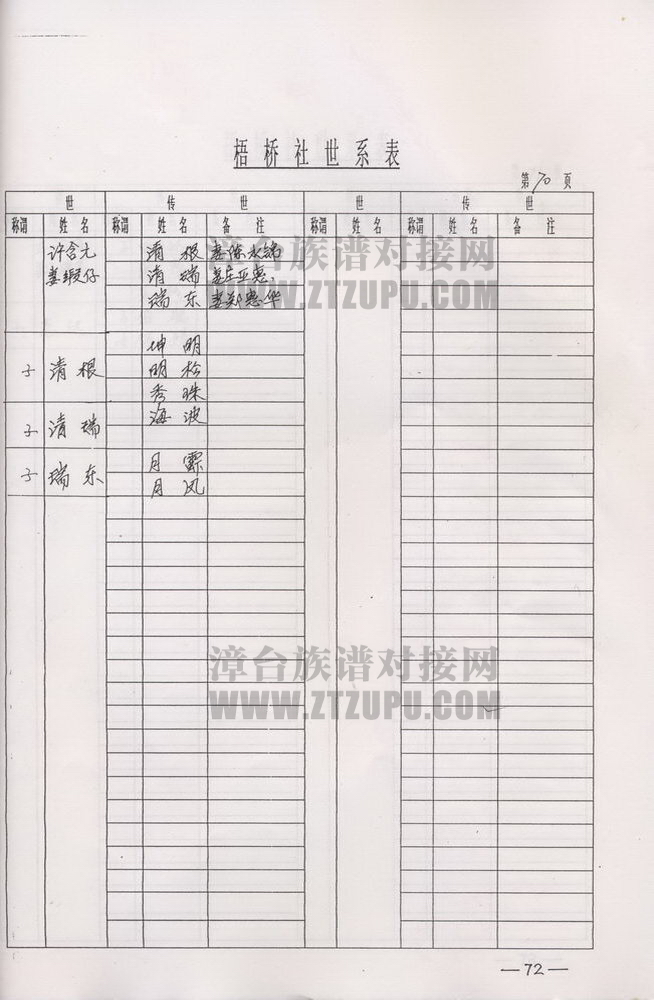 梧桥社世系表
第70页
世 传 世 世 传 世
称谓 姓名 称谓 姓名 备注 称谓 姓名 称谓 姓名 备注
许含元 清根 妻陈
妻 仔 清瑞 妻庄亚惠
瑞东 妻郑惠华
坤明
子 清根 明松
秀珠
子 清瑞 海波
子 瑞东 月霖
月凤
漳台族谱对接网
WWW.ZTZUPU.COM
漳台族谱对接网
WWW.ZTZUPU.COM
—72—